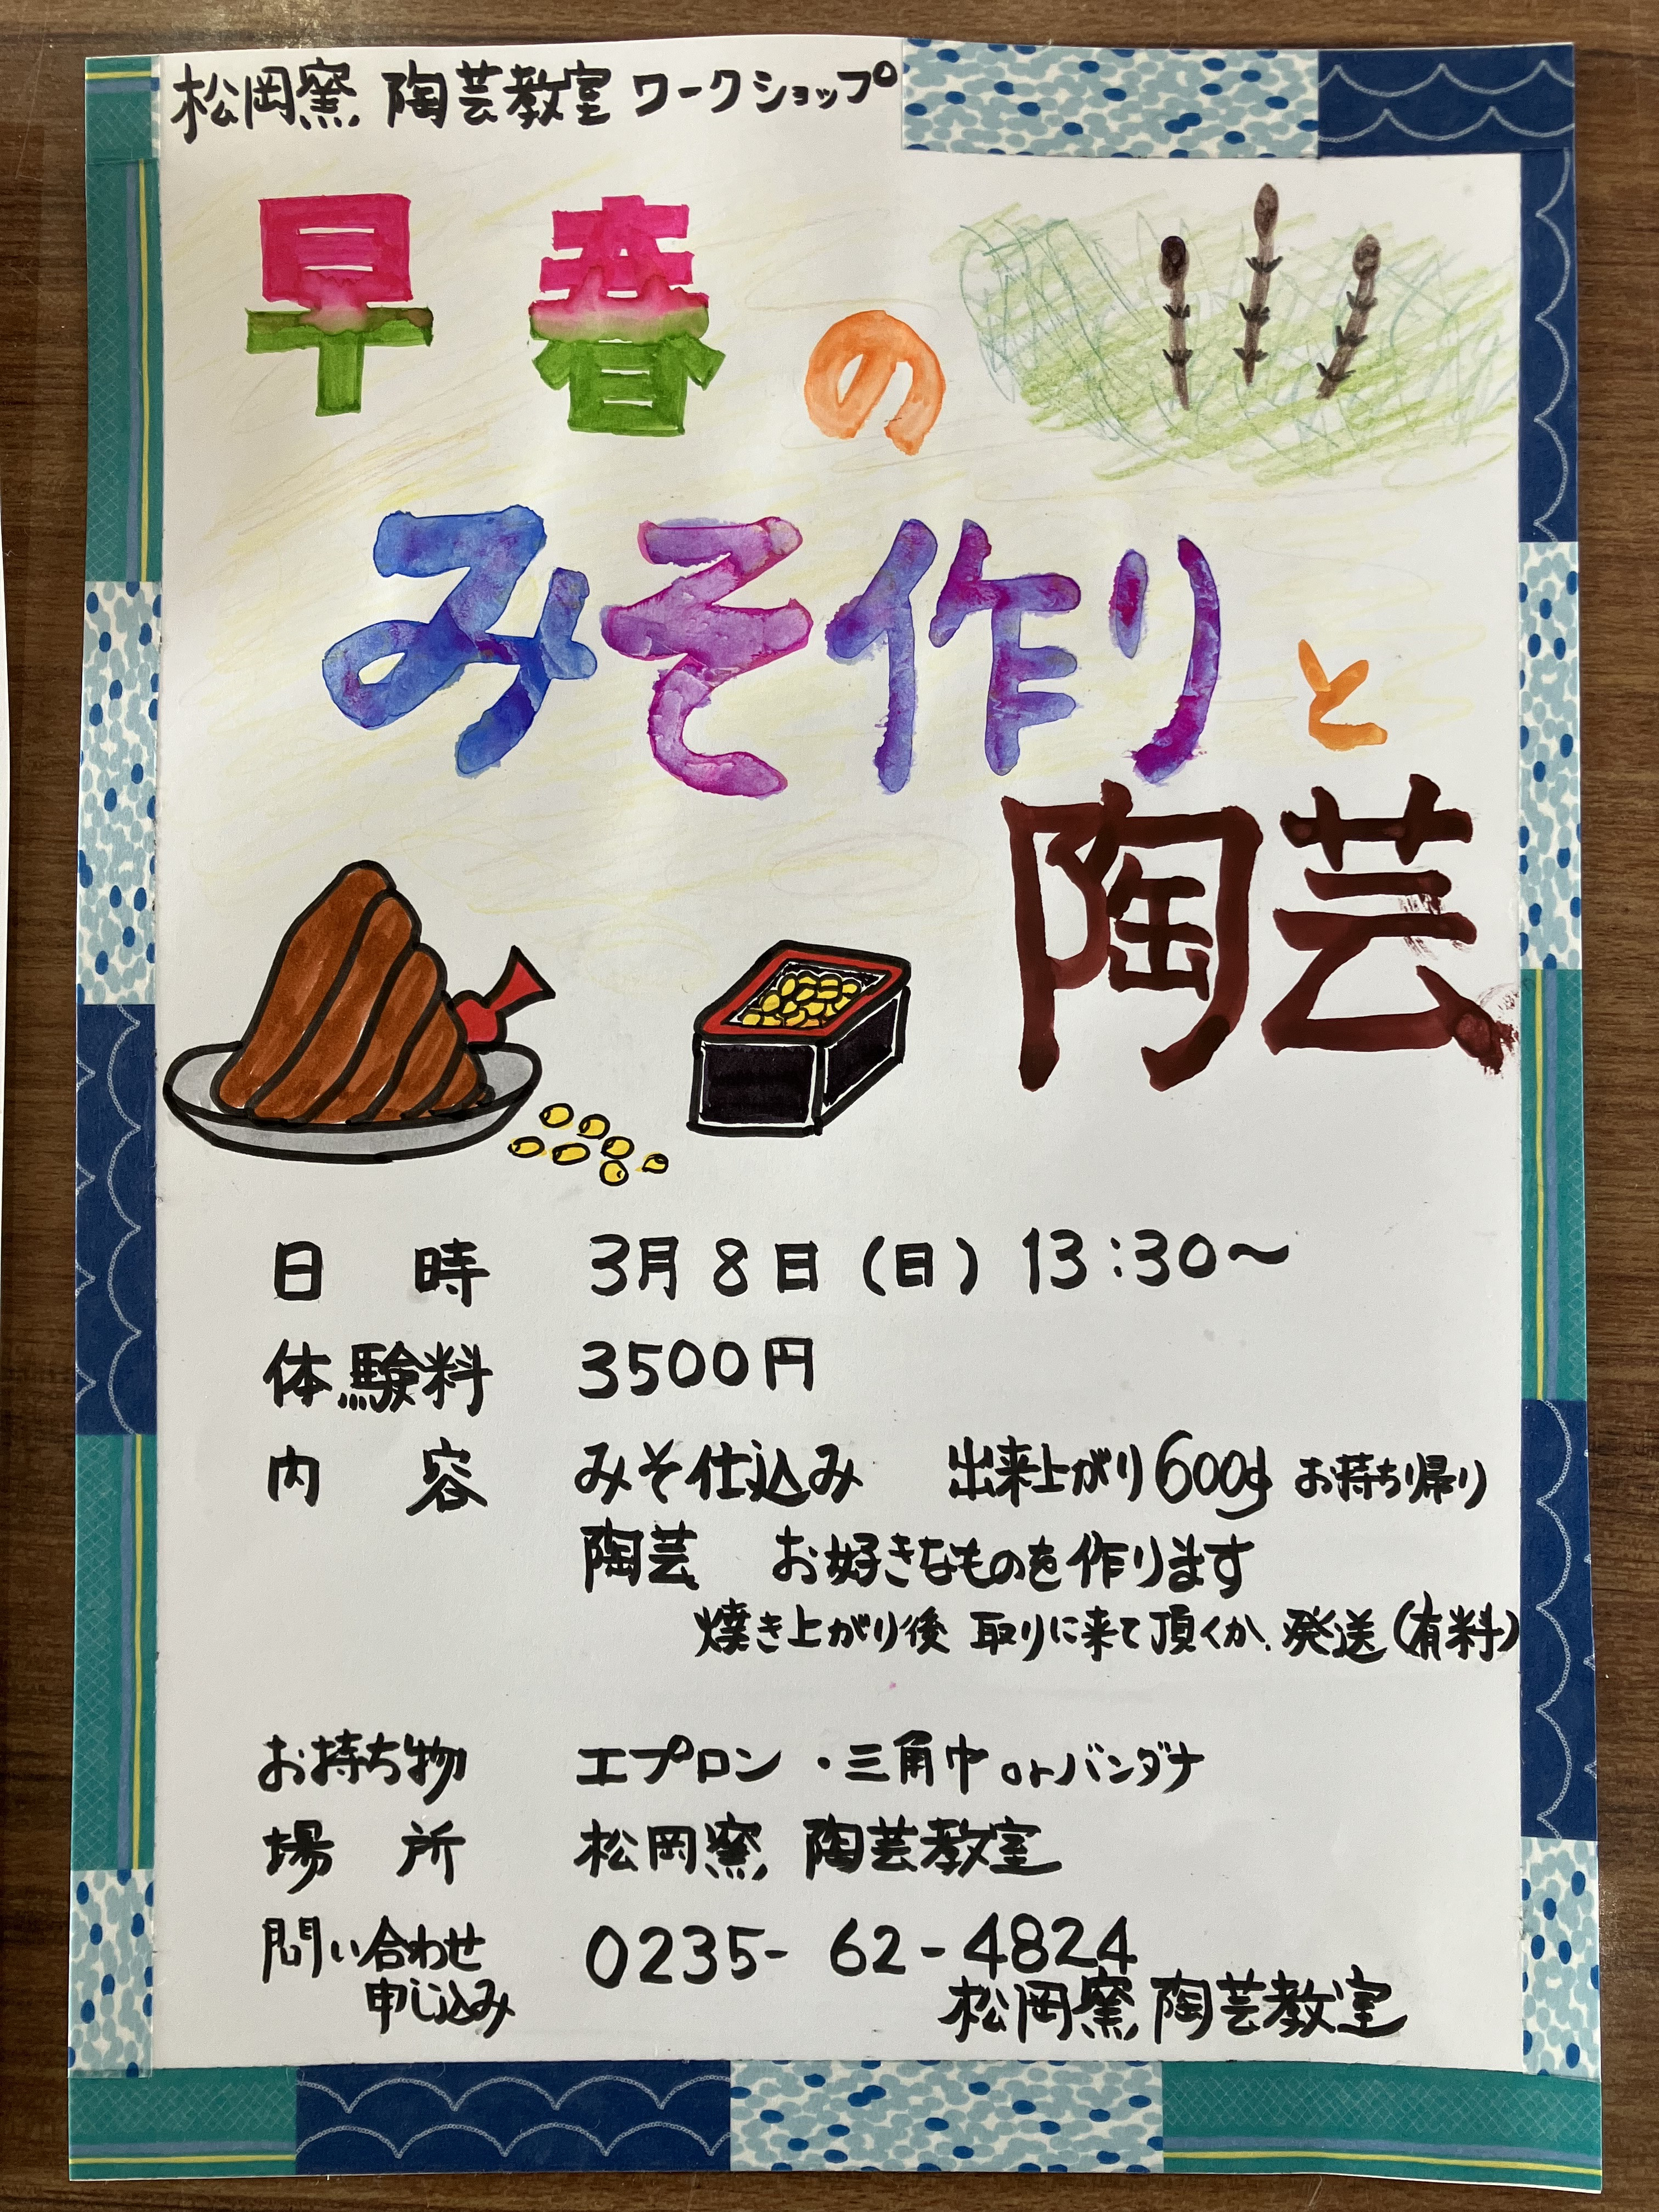 松岡窯 陶芸教室 ワークショップ
早春の
みそ作りと
陶芸
日時 3月8日(日) 13:30〜
体験料 3500円
内容 みそ仕込み 出来上がり600g お持ち帰り
陶芸 お好きなものを作ります
焼き上がり後 取りに来て頂くか、発送(有料)
お持ち物 エプロン・三角巾orバンダナ
場所 松岡窯 陶芸教室
問い合わせ 0235-62-4824
申し込み 松岡窯 陶芸教室